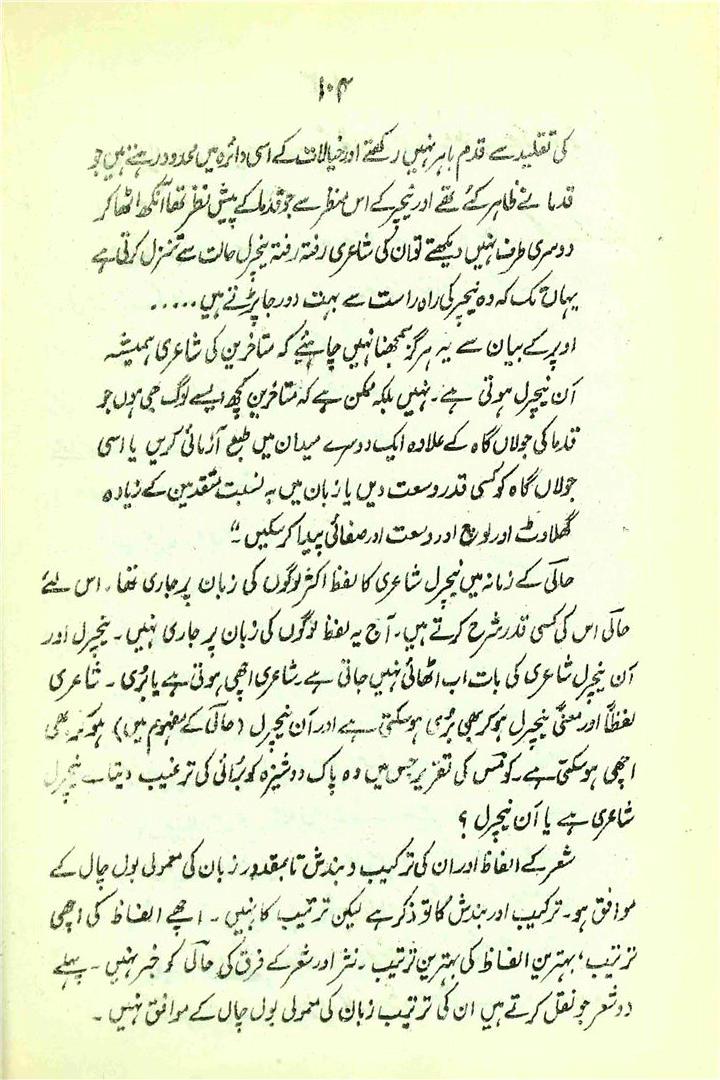 ۱۰۴
کی تقلید سے قدم باہر نہیں رکھتے اور خیالات کے اسی دائرہ میں محدود رہتے ہیں جو
قدما نے ظاہر کئے تھے اور نیچر کے اس منظر سے جو قدما کے پیش نظر تھا آنکھ اٹھا کر
دوسری طرف نہیں دیکھتے تو ان کی شاعری رفتہ رفتہ نیچرل حالت سے تنزل کرتی ہے
یہاں تک کہ وہ نیچر کی راہ راست سے بہت دور جا پڑتے ہیں .....
اوپر کے بیان سے یہ ہرگز سمجھنا نہیں چاہئیے کہ متاخرین کی شاعری ہمیشہ
اَن نیچرل ہوتی ہے۔ نہیں بلکہ ممکن ہے کہ متاخرین کچھ ایسے لوگ بھی ہوں جو
قدما کی جولاں گاہ کے علاوہ ایک دوسرے میدان میں طبع آزمائی کریں یا اسی
جولاں گاہ کو کسی قدر وسعت دیں یا زبان میں بہ نسبت متقدمین کے زیادہ
گھلاوٹ اور لوچ اور وسعت اور صفائی پیدا کر سکیں۔“
حالی کے زمانہ میں نیچرل شاعری کا لفظ اکثر لوگوں کی زبان پر جاری تھا۔ اس لئے
حالی اس کی کسی قدر شرح کرتے ہیں۔ آج یہ لفظ لوگوں کی زبان پر جاری نہیں۔ نیچرل اور
اَن نیچرل شاعری کی بات اب اٹھائی نہیں جاتی ہے۔ شاعری اچھی ہوتی ہے یا بُری۔ شاعری
لفظاً اور معنیً نیچرل ہو کر بھی بُری ہوسکتی ہے اور اَن نیچرل (حالی کے مفہوم میں) ہو کر بھی
اچھی ہوسکتی ہے۔ کومس کی تقریر جس میں وہ پاک دوشیزہ کو بُرائی کی ترغیب دیتا ہے نیچرل
شاعری ہے یا اَن نیچرل؟
شعر کے الفاظ اور ان کی ترکیب و بندش تا بمقدور زبان کی معمولی بول چال کے
موافق ہو۔ ترکیب اور بندش کا تو ذکر ہے لیکن ترتیب کا نہیں۔ اچھے الفاظ کی اچھی
ترتیب، بہترین الفاظ کی بہترین ترتیب۔ نثر اور شعر کے فرق کی حالی کو خبر نہیں۔ پہلے
دو شعر جو نقل کرتے ہیں ان کی ترتیب زبان کی معمولی بول چال کے موافق نہیں۔